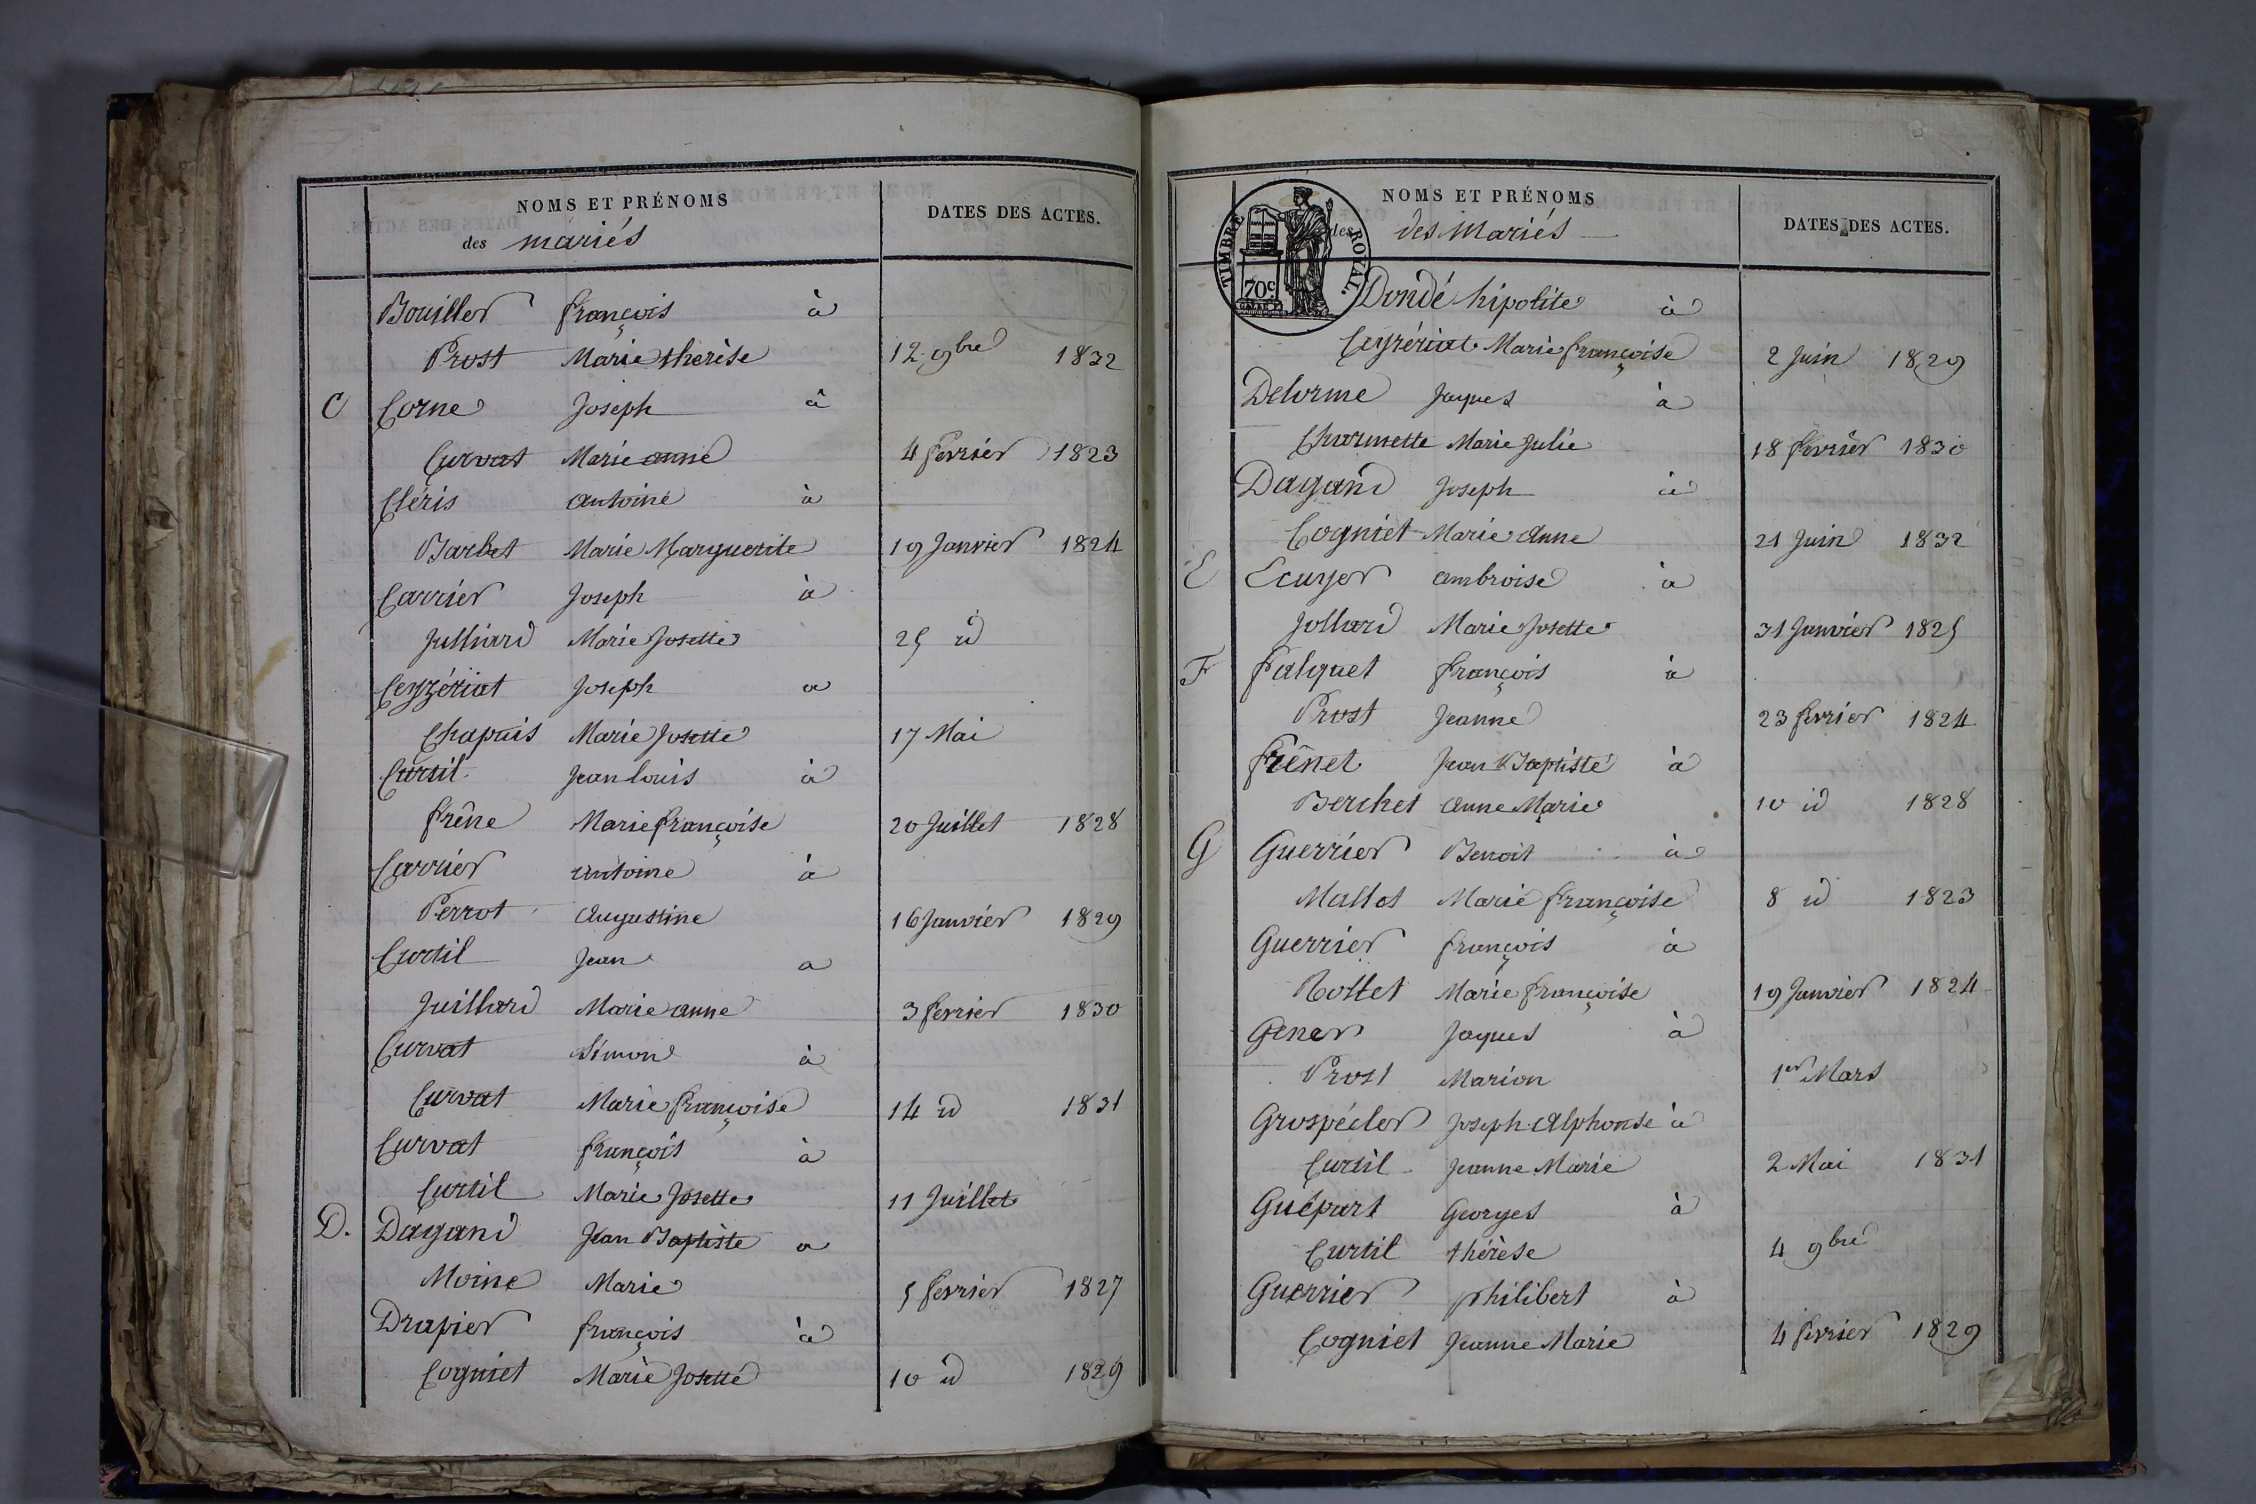 NOMS ET PRÉNOMS
des mariés
DATES DES ACTES.
Bouiller françois à
Prost Marie therèse 12 9bre 1832
C Corne Joseph à
Curvat Marie anne 4 fevrier 1823
Cléris antoine à
Barbet Marie Marguerite 19 Janvier 1824
Carrier Joseph à
Julliard Marie Josette 25 id
Ceyzériat Joseph a
Chapuis Marie Josette 17 Mai
Curtil Jean louis à
frêne Marie françoise 20 Juillet 1828
Carrier antoine à
Perrot augustine 16 Janvier 1829
Curtil Jean a
Juillard Marie anne 3 fevrier 1830
Curvat Simon à
Curvat Marie françoise 14 id 1831
Curvat françois à
Curtil Marie Josette 11 Juillet
D. Dagand Jean Baptiste a
Moine Marie 5 fevrier 1827
Drapier françois à
Cogniet Marie Josette 10 id 1829
NOMS ET PRÉNOMS
des des Mariés
DATES DES ACTES.
TIMBRE ROYAL.
70c
Dondé hipolite à
Ceyzériat Marie françoise 2 Juin 1829
Delorme Jaques à
Charmette Marie Julie 18 fevrier 1830
Dagand Joseph à
Cogniet Marie anne 21 Juin 1832
E Ecuyer ambroise à
Jolland Marie Josette 31 Janvier 1825
F falquet françois à
Prost Jeanne 23 fevrier 1824
frênet Jean Baptiste à
Berchet anne Marie 10 id 1828
G Guerrier Benoit à
Mallet Marie françoise 8 id 1823
Guerrier françois à
Rottet Marie françoise 19 Janvier 1824
Gener Jaques à
Prost Marion 1er Mars
Grospécler Joseph Alphonse à
Curtil Jeanne Marie 2 Mai 1831
Guépart Georges à
Curtil thérèse 4 9bre
Guerrier philibert à
Cogniet Jeanne Marie 4 fevrier 1829